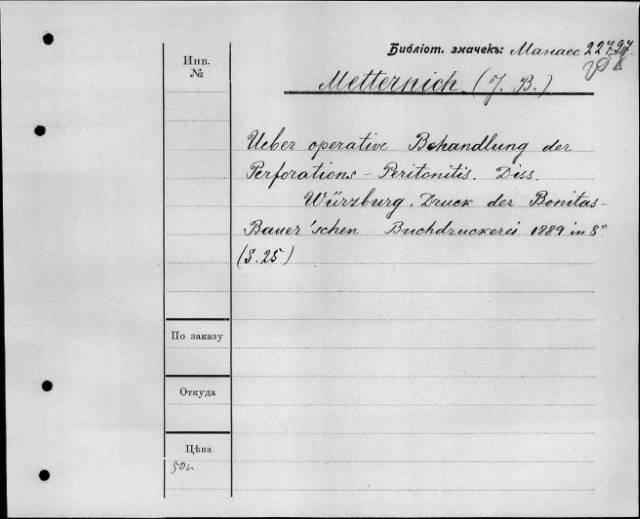 Библіот. значекъ: Манасс 22797.
Инв.
№
Metternich (J. B.)
Ueber operative Behandlung der
Perforations - Peritonitis. Diss.
Würzburg. Druck der Bonitas-
Bauer'schen Buchdruckerei 1889 in 8°
(S. 25)
По заказу
Откуда
Цѣна